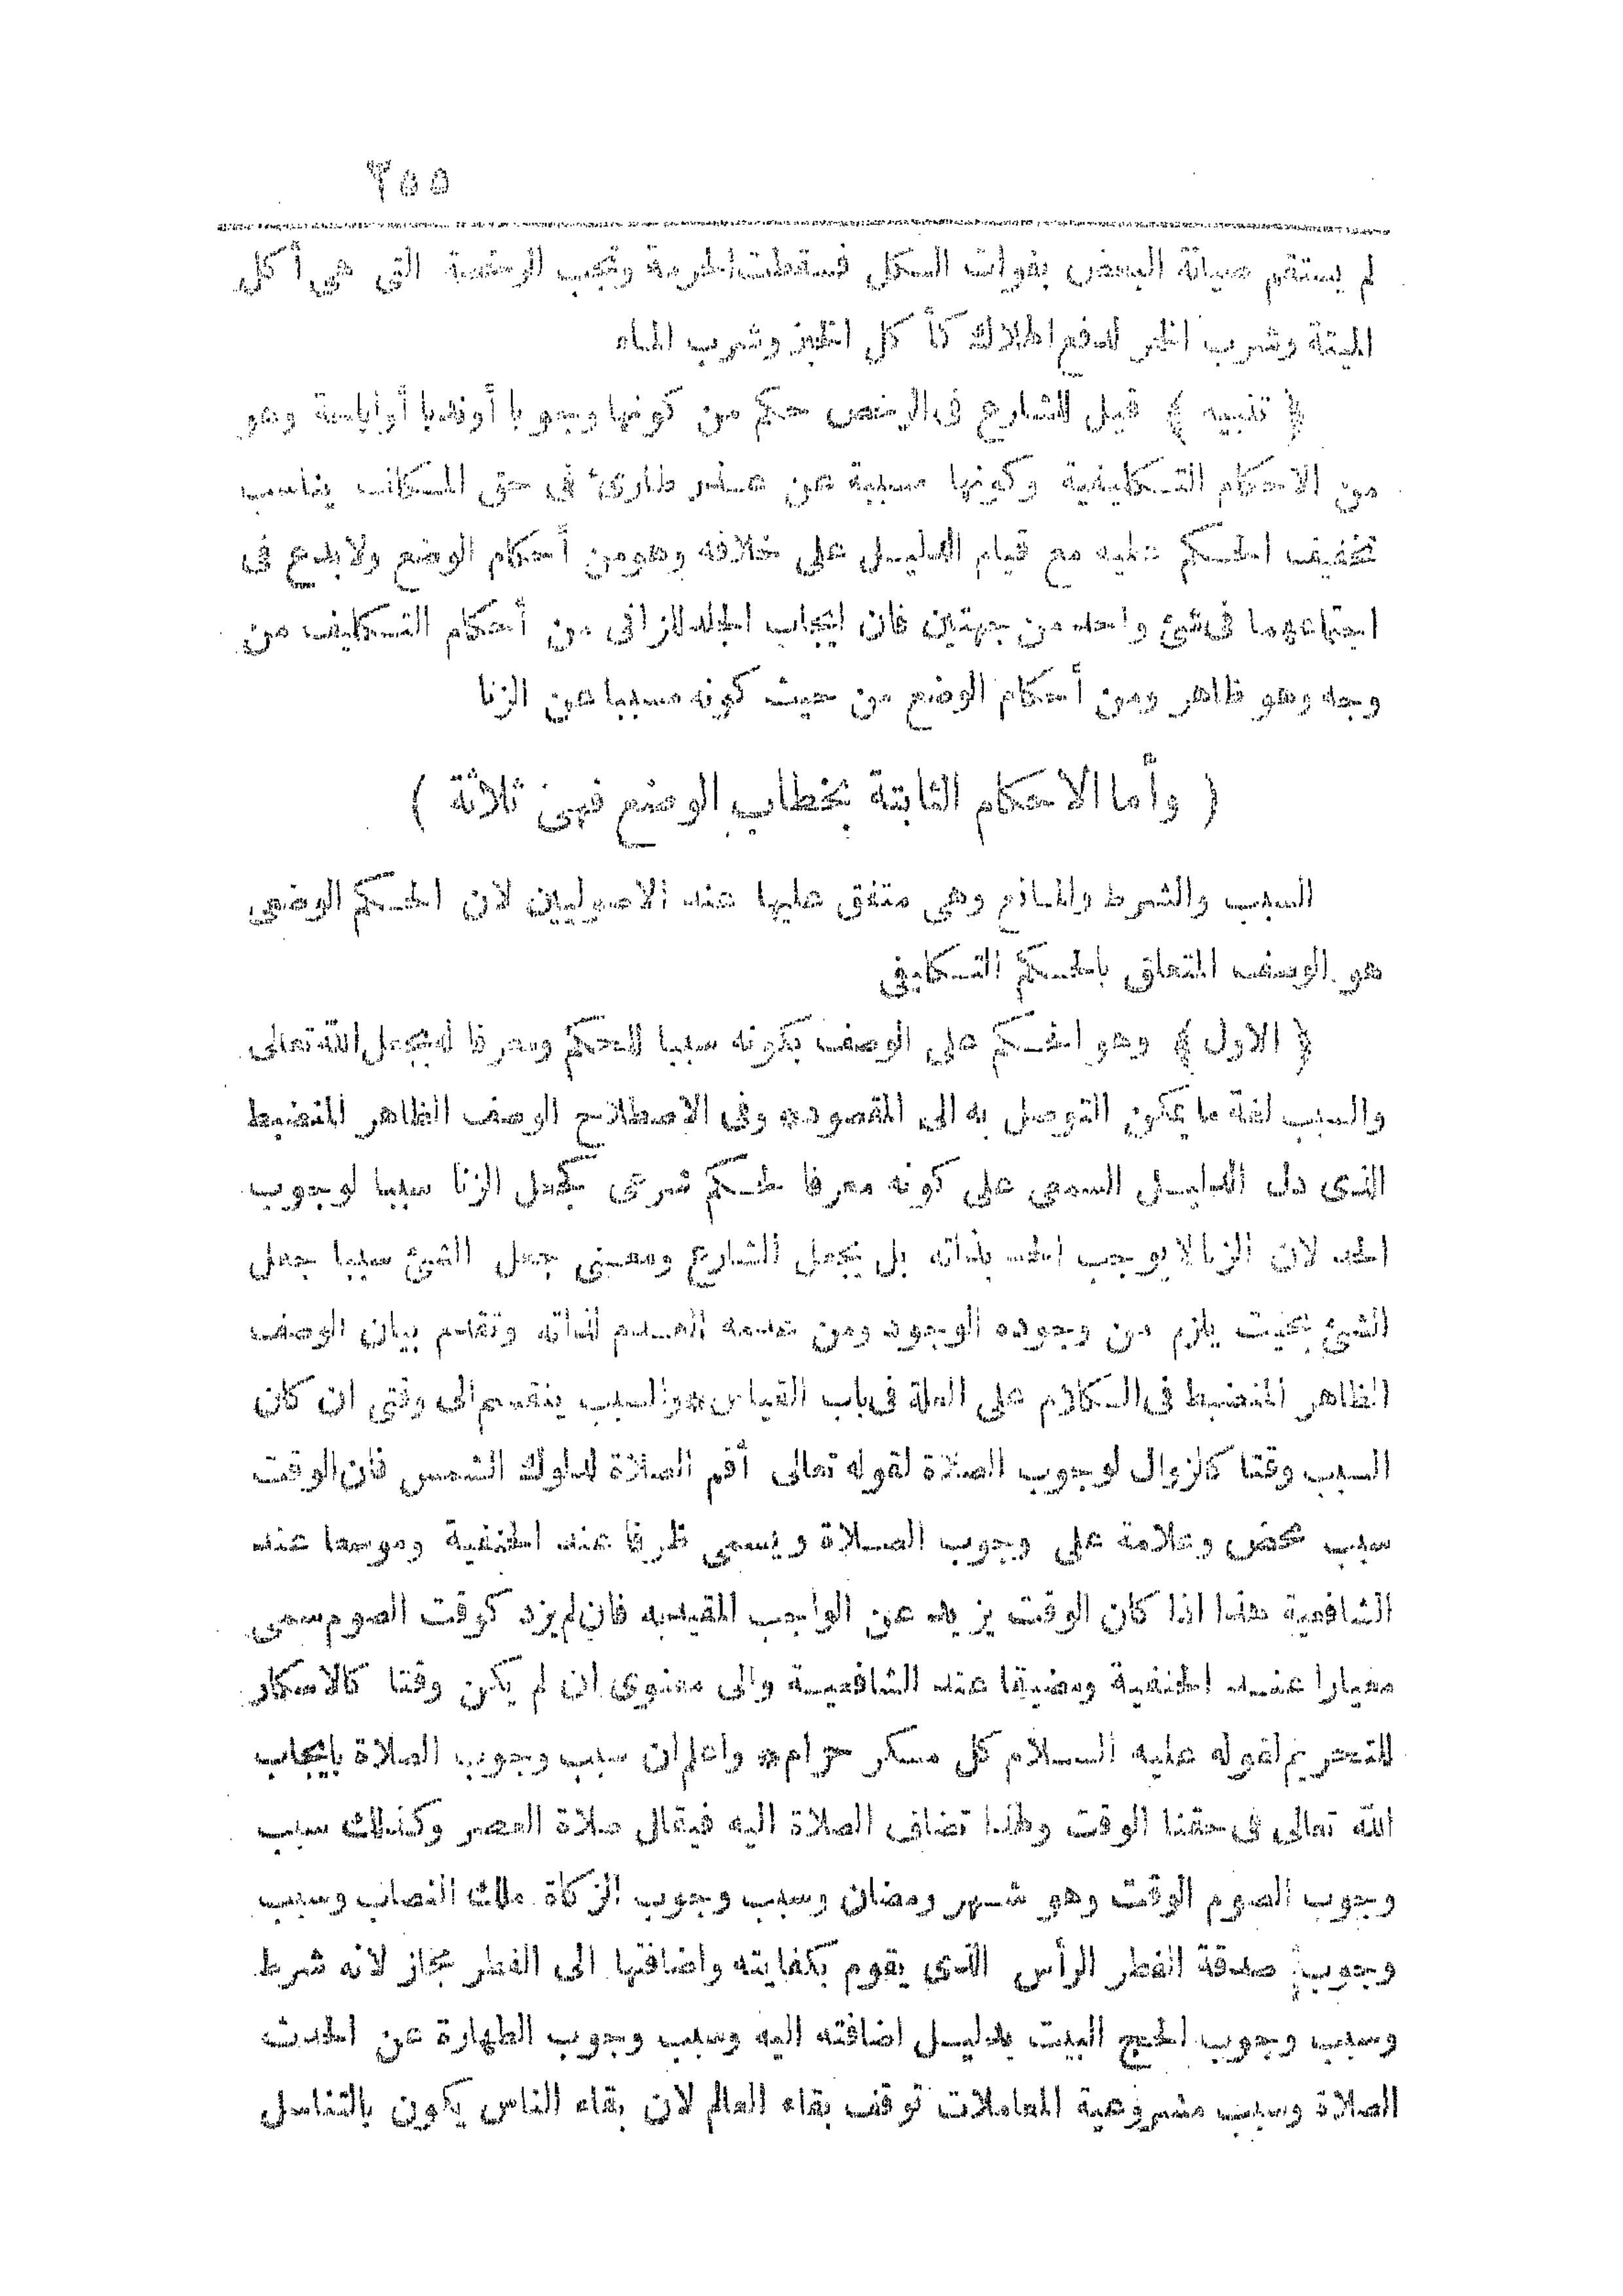 ٢٥٥
لم يستقم صيانة البعض بفوات الكل فسقطت الحرمة وتجب الرخصة التى هى أكل
الميتة وشرب الخمر لدفع الهلاك كأ كل الخبز وشرب الماء
﴿ تنبيه ﴾ قيل للشارع فى الرخص حكم من كونها وجوبا أوندبا أواباحة وهو
من الاحكام التكليفية وكونها مسببة عن عذر طارئ فى حق المكلف يناسب
تخفيف الحكم عليه مع قيام الدليل على خلافه وهومن أحكام الوضع ولابدع فى
اجتماعهما فى شئ واحد من جهتين فان ايجاب الجلد للزانى من أحكام التكليف من
وجه وهو ظاهر ومن أحكام الوضع من حيث كونه مسببا عن الزنا
( وأما الاحكام الثابتة بخطاب الوضع فهى ثلاثة )
السبب والشرط والمانع وهى متفق عليها عند الاصوليين لان الحكم الوضعى
هو الوصف المتعلق بالحكم التكليفى
﴿ الاول ﴾ وهو الحكم على الوصف بكونه سببا للحكم ومعرفا له بجعل الله تعالى
والسبب لغة ما يمكن التوصل به الى المقصود* وفى الاصطلاح الوصف الظاهر المنضبط
الذى دل الدليل السمعى على كونه معرفا لحكم شرعى كجعل الزنا سببا لوجوب
الحد لان الزنا لا يوجب الحد بذاته بل بجعل الشارع ومعنى جعل الشئ سببا جعل
الشئ بحيث يلزم من وجوده الوجود ومن عدمه العدم لذاته وتقدم بيان الوصف
الظاهر المنضبط فى الكلام على العلة فى باب القياس* والسبب ينقسم الى وقتى ان كان
السبب وقتا كالزوال لوجوب الصلاة لقوله تعالى أقم الصلاة لدلوك الشمس فان الوقت
سبب محض وعلامة على وجوب الصلاة ويسمى ظرفا عند الحنفية وموسعا عند
الشافعية هذا اذا كان الوقت يزيد عن الواجب المقيد به فان لم يزد كوقت الصوم سمى
معيارا عند الحنفية ومضيقا عند الشافعية والى معنوى ان لم يكن وقتا كالاسكار
للتحريم لقوله عليه السلام كل مسكر حرام* واعلم ان سبب وجوب الصلاة بايجاب
الله تعالى فى حقنا الوقت ولهذا تضاف الصلاة اليه فيقال صلاة العصر وكذلك سبب
وجوب الصوم الوقت وهو شهر رمضان وسبب وجوب الزكاة ملك النصاب وسبب
وجوب صدقة الفطر الرأس الذى يقوم بكفايته واضافتها الى الفطر مجاز لانه شرط
وسبب وجوب الحج البيت بدليل اضافته اليه وسبب وجوب الطهارة عن الحدث
الصلاة وسبب مشروعية المعاملات توقف بقاء العالم لان بقاء الناس يكون بالتناسل